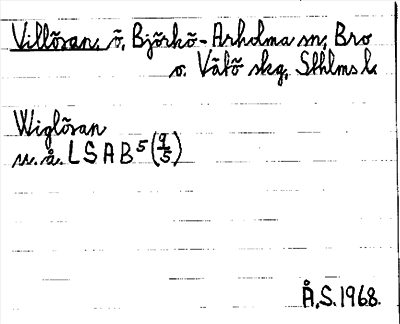 Villösan, ö, Björkö-Arholma sn, Bro
o. Vätö skg, Sthlms l.
Wiglösan
u.å. LSA B⁵(9/5)
Å.S. 1968.